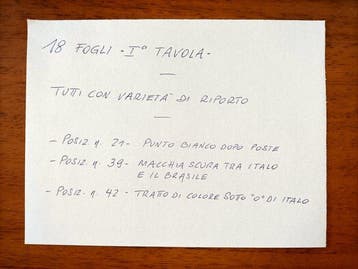 18 FOGLI - Iª TAVOLA -
TUTTI CON VARIETA' DI RIPORTO
- POSIZ. n. 21 - PUNTO BIANCO DOPO POSTE
- POSIZ. n. 39 - MACCHIA SCURA TRA ITALO
E IL BRASILE
- POSIZ. n. 42 - TRATTO DI COLORE SOTO "O" DI ITALO